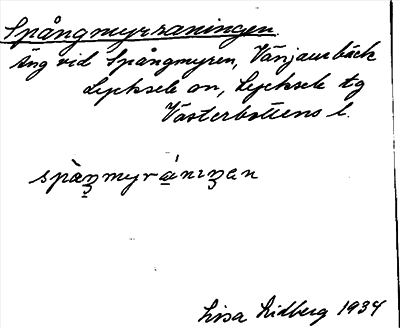 Spångmyrraningen.
Äng vid Spångmyren, Vänjaurbäck
Lycksele sn, Lycksele tg
Västerbottens l.
Lisa Lidberg 1934